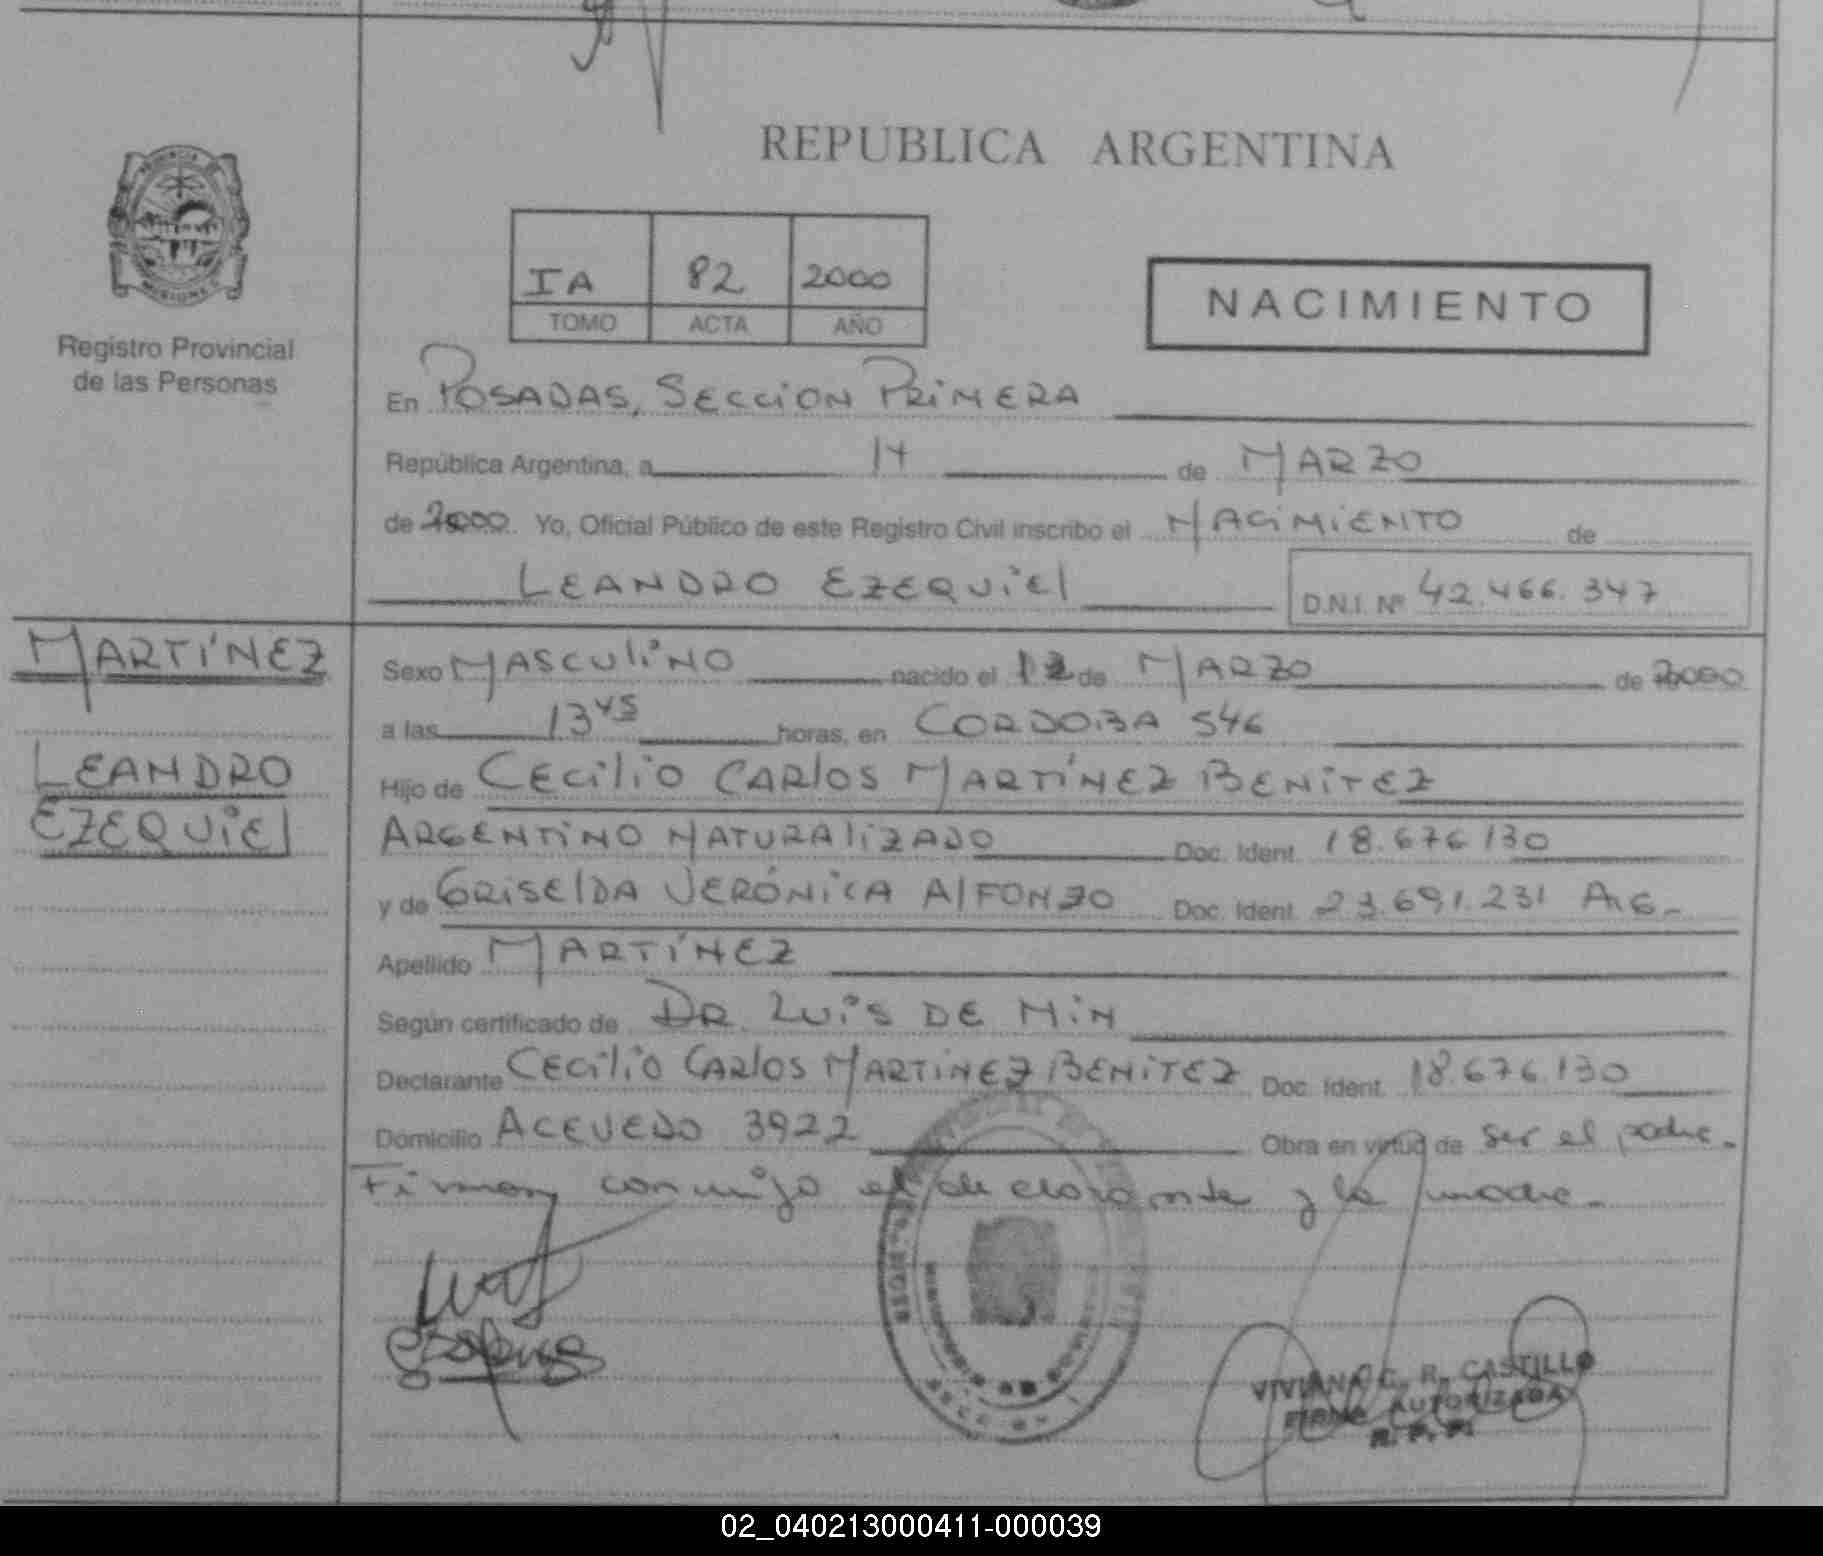 REPUBLICA ARGENTINA
IA 82 2000
TOMO ACTA AÑO
NACIMIENTO
Registro Provincial
de las Personas
En POSADAS, SECCION PRIMERA
República Argentina, a 14 de MARZO
de 2000 Yo, Oficial Público de este Registro Civil inscribo el NACIMIENTO de
LEANDRO EZEQUIEL D.N.I. Nº 42.466.347
MARTÍNEZ
LEANDRO
EZEQUIEL
Sexo MASCULINO nacido el 12 de MARZO de 2000
a las 13 45 horas, en CORDOBA 546
Hijo de CECILIO CARLOS MARTÍNEZ BENITEZ
ARGENTINO NATURALIZADO Doc. Ident. 18.676.130
y de GRISELDA VERÓNICA ALFONZO Doc. Ident. 23.691.231 ARG.-
Apellido MARTÍNEZ
Según certificado de DR. LUIS DE MIN
Declarante CECILIO CARLOS MARTINEZ BENITEZ Doc. Ident. 18.676.130
Domicilio ACEVEDO 3922 Obra en virtud de ser el padre.-
Firman conmigo el declarante y la madre.-
VIVIANA C. R. CASTILLO
FIRMA AUTORIZADA
R. P. P.
02_040213000411-000039